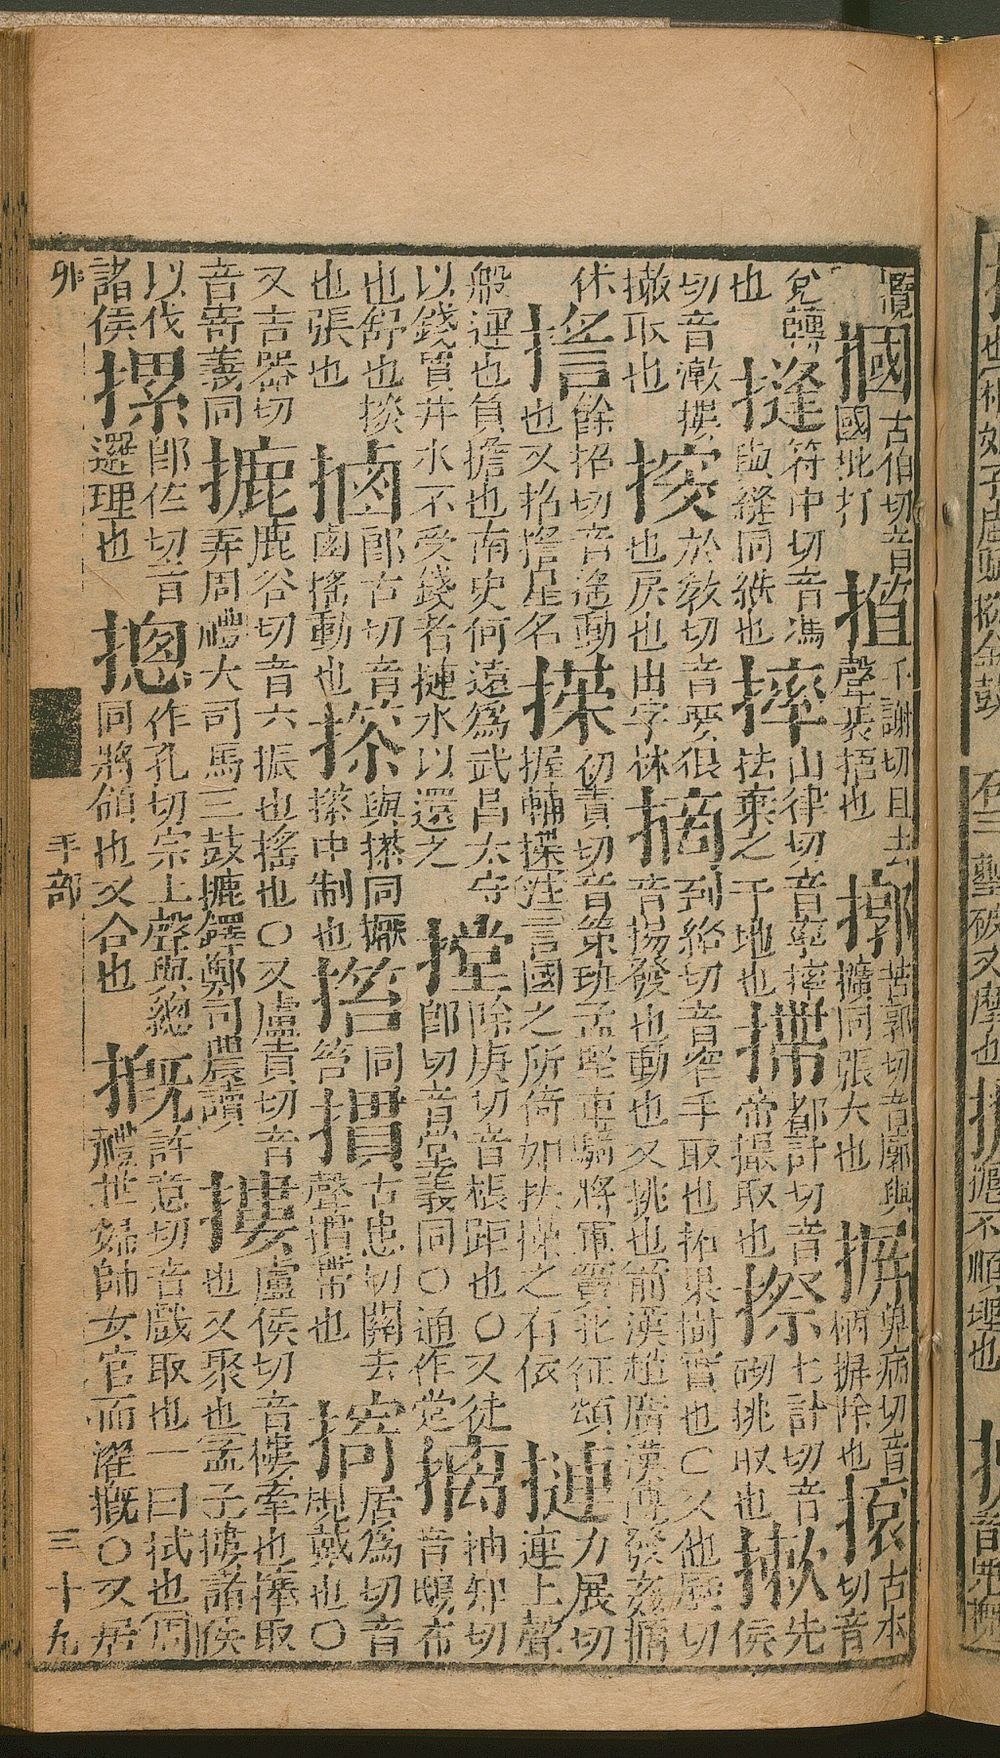 覽
摑 古伯切音
國批打
千謝切且去
聲裴捂也
苦郭切音廓與
擴同張大也
摒 卑病切音
柄摒除也
㨰 古本
切音
兗轉
也
摓 符中切音馮
與縫同紩也
摔 山律切音率摔
抾棄之于地也
摕 都計切音
帝撮取也
摖 七計切音
砌挑取也
先
侯
切音漱
取也
於教切音要很
也戾也出字林
摘 到紿切音窄手取也拓果樹實也○又他歷切
音揚發也動也又挑也前漢趙廣漢傳發姦擿
伏
搖 餘招切音遙動
也又招搖星名
初責切音策班孟堅車騎將軍竇北征頌
握輔言國之所倚如扶之右依
摙 力展切
連上聲
般運也負擔也南史何遠爲武昌太守
以錢買井水不受錢者摙水以還之
摚 除庚切音棖距也○又徒
郎切音堂義同○通作
摛 抽知切
音螭布
也舒也掞
也張也
郎古切音
鹵搖動也
與同橛
中制也
同
答
摜 古患切關去
聲摜帶也
居爲切音
戴也○
又吉器切
音寄義同
摝 鹿谷切音六振也搖也○又盧貢切音
弄周禮大司馬三鼓摝鐸鄭司農讀
摟 盧侯切音樓牽也捧取
也又聚也孟子摟諸侯
以伐
諸侯
摞 郎佐切音
邏理也
摠 作孔切宗上聲與總
同將領也又合也
摡 許意切音戲取也一曰拭也周
禮世婦帥女官而濯摡○又居
卯 手部 三十九